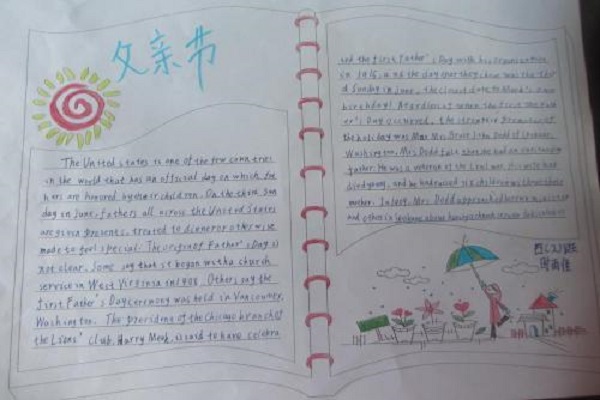 父亲节
The United States is one of the few countries
in the world that has an official day on which fat
hers are honored by their children. On the third Sun
day in June, fathers all across the United States
are given presents, treated to dinner or otherwise
made to feel special. The origin of Father's Day is
not clear. Some say that it began with a church
service in West Virginia in 1908. Others say the
first Father's Day ceremony was held in Vancouver,
Washington. The president of the Chicago branch of
the Lions' Club, Harry Meek, is said to have celebra
ted the first Father's Day with his organization
in 1915, and the day they chose was the thir
d Sunday in June, the closest date to Meek's own
birthday! Regardless of when the first
Father's Day occurred, the strongest promoter of
the holiday was Mrs. Bruce John Dodd of Spokane,
Washington. Mrs. Dodd felt she had an
father. He was a veteran of the Civil War. His wife had
died young, and he had raised six children without their
mother. In 1909, Mrs. Dodd approached her own minister
and others in Spokane about